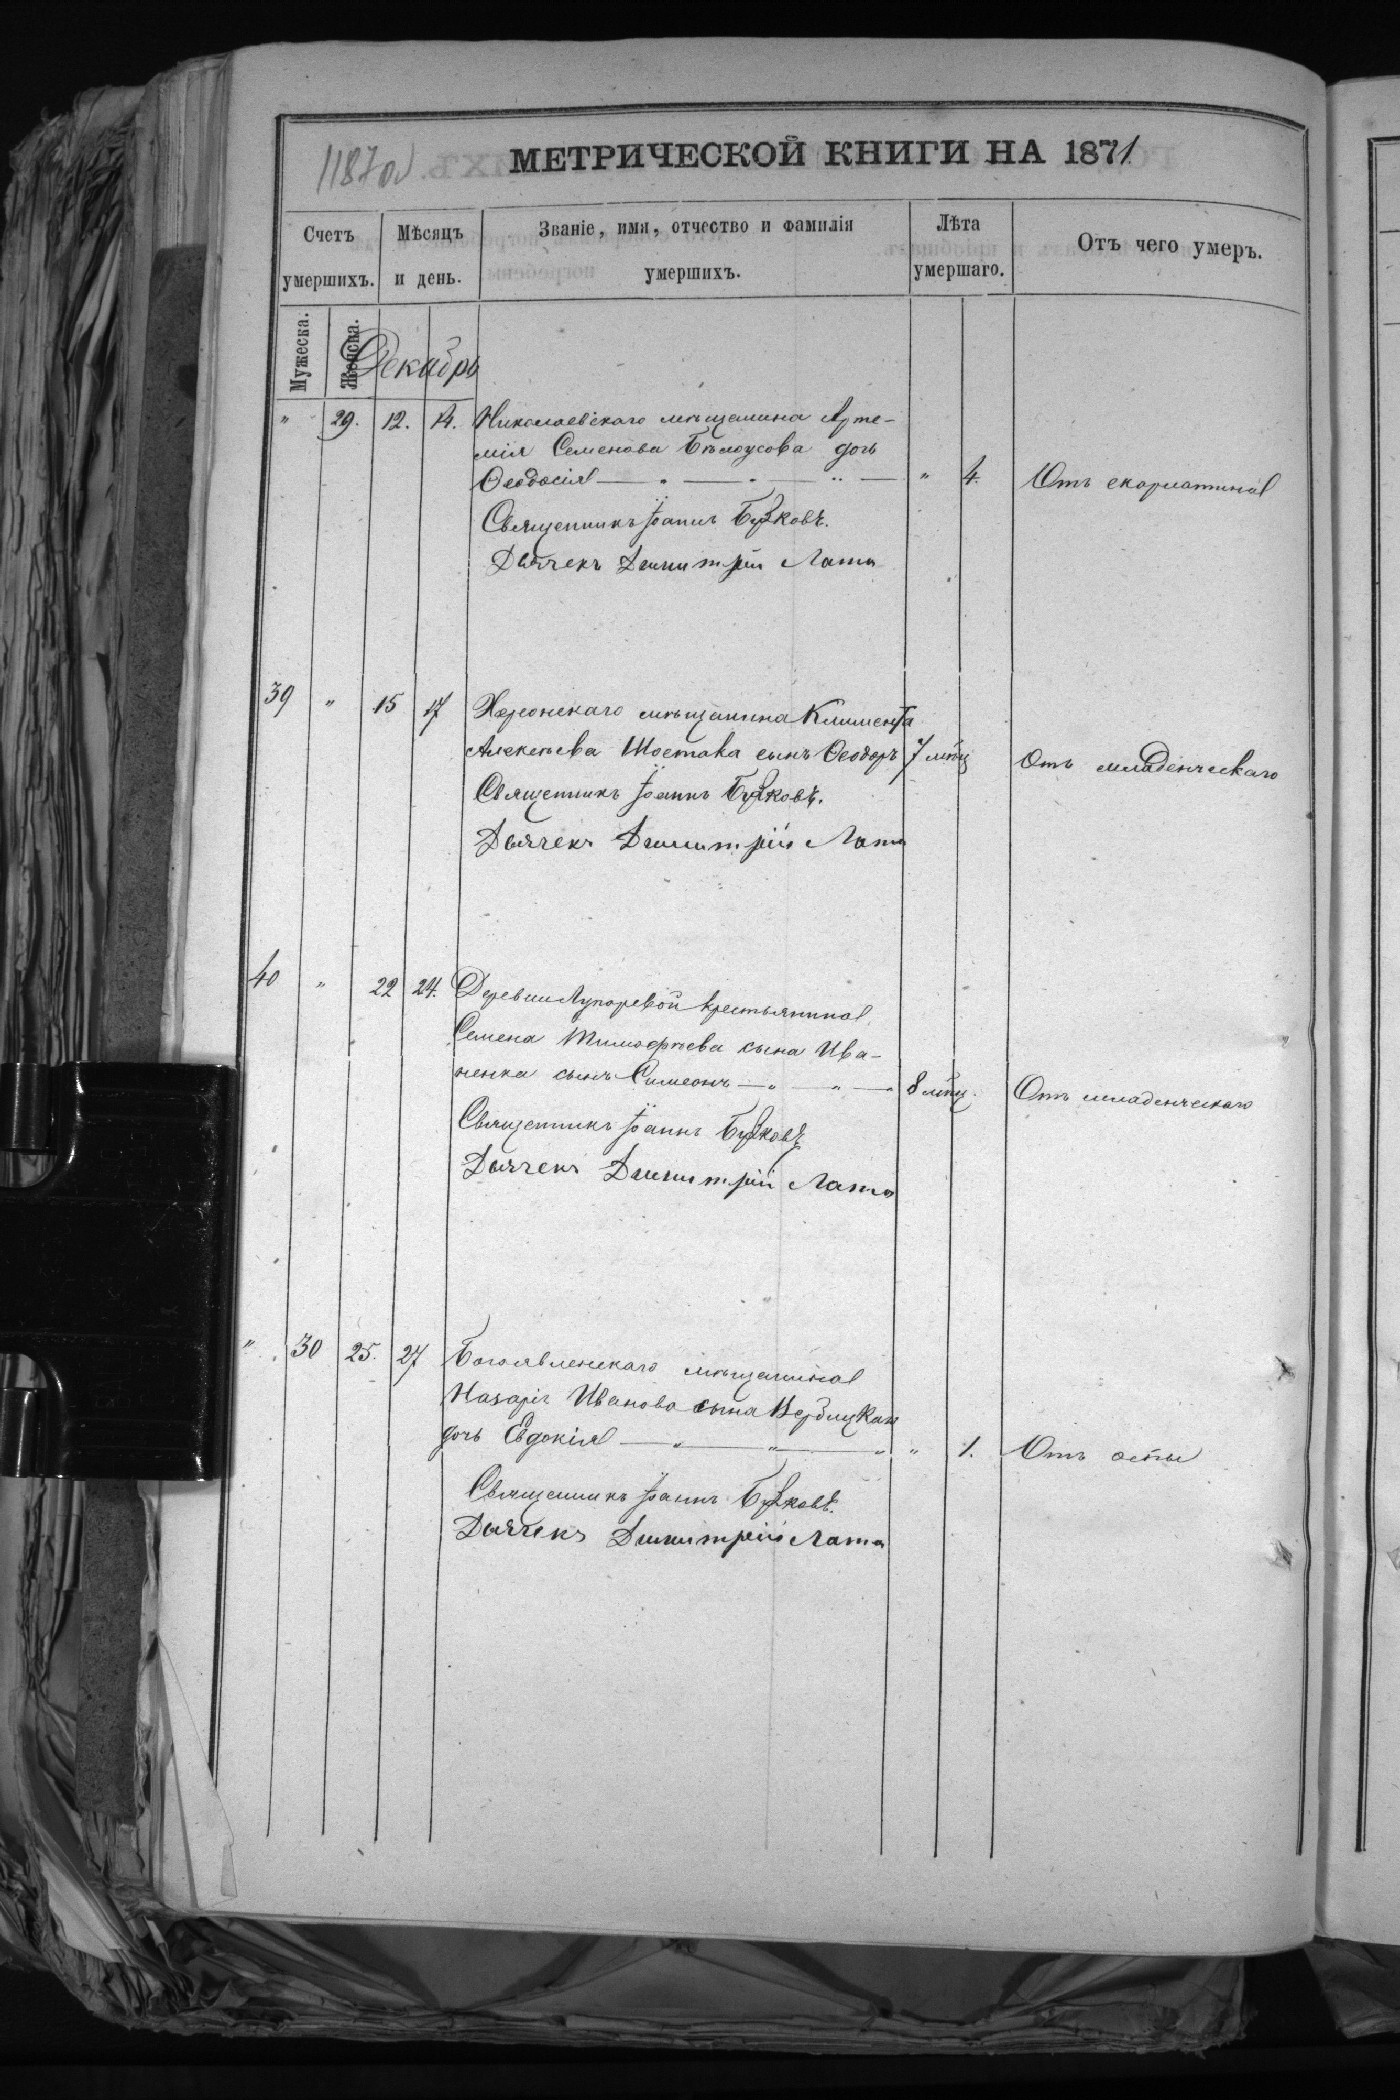 1187об
МЕТРИЧЕСКОЙ КНИГИ НА 1871
Счетъ умершихъ.
Мѣсяцъ и день.
Званіе, имя, отчество и фамилія умершихъ.
Лѣта умершаго.
Отъ чего умеръ.
Мужеска.
Женска.
Декабрь
" 29. 12. 14. Николаевскаго мѣщанина Арте-
мія Семенова Бѣлоусова дочь
Ѳеодосія — " — " — " — " 4. Отъ скарлатины
Священникъ Іоаннъ Бузковъ.
Дьячекъ Димитрій Лата
39 " 15 17 Херсонскаго мѣщанина Климента
Алексѣева Шостака сынъ Ѳеодоръ 7 мѣц Отъ младенческаго
Священникъ Іоаннъ Бузковъ.
Дьячекъ Димитрій Лата
40 " 22 24. Деревни Лупаревой крестьянина
Семена Тимофѣева сына Ива-
ненка сынъ Симеонъ — " — " — " 8 мѣц. Отъ младенческаго
Священникъ Іоаннъ Бузковъ
Дьячекъ Димитрій Лата
" 30 25. 27 Богоявленскаго мѣщанина
Назарія Иванова сына
дочь Евдокія — " — " — " " 1. Отъ оспы
Священникъ Іоаннъ Бузковъ.
Дьячекъ Димитрій Лата